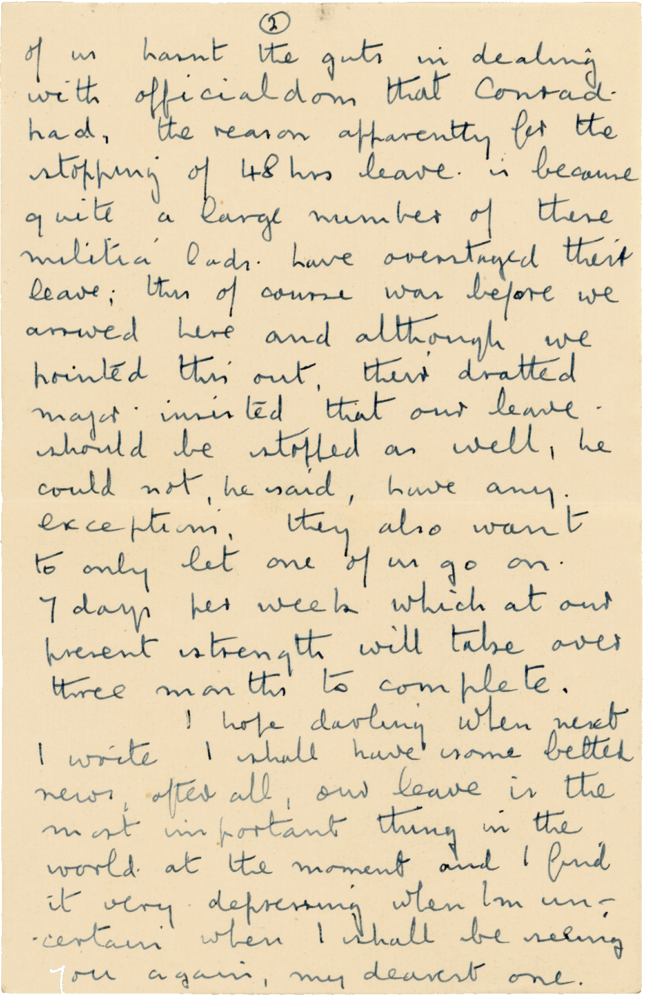 2
of us hasnt the guts in dealing
with officialdom that Conrad
had, the reason apparently for the
stopping of 48 hrs leave. is because
quite a large number of these
militia lads. have overstayed their
leave; this of course was before we
arrived here and although we
pointed this out, their dratted
major insisted that our leave
should be stopped as well, he
could not, he said, have any.
exceptions. they also want
to only let one of us go on.
7 days per week which at our
present strength will take over
three months to complete.
I hope darling when next
I write I shall have some better
news, after all, our leave is the
most important thing in the
world at the moment and I find
it very depressing when Im un-
certain when I shall be seeing
you again, my dearest one.